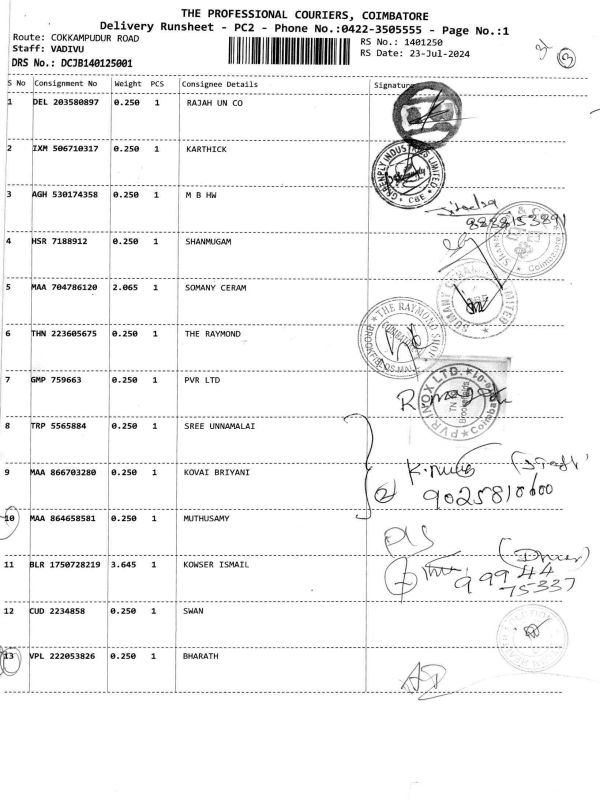 THE PROFESSIONAL COURIERS, COIMBATORE
Delivery Runsheet - PC2 - Phone No.:0422-3505555 - Page No.:1
Route: COKKAMPUDUR ROAD
RS No.: 1401250
Staff: VADIVU
RS Date: 23-Jul-2024
DRS No.: DCJB140125001
S No Consignment No Weight PCS Consignee Details Signature
1 DEL 203580897 0.250 1 RAJAH UN CO
2 IXM 506710317 0.250 1 KARTHICK
GREENPLY INDUSTRIES LIMITED
CBE
3 AGH 530174358 0.250 1 M B HW
8838153891
4 HSR 7188912 0.250 1 SHANMUGAM
Coimbatore
5 MAA 704786120 2.065 1 SOMANY CERAM
SOMANY CERAMICS LIMITED
6 THN 223605675 0.250 1 THE RAYMOND
THE RAYMOND SHOP
7 GMP 759663 0.250 1 PVR LTD
PVR INOX LTD.
TN
8 TRP 5565884 0.250 1 SREE UNNAMALAI
9 MAA 866703280 0.250 1 KOVAI BRIYANI
9025810600
10 MAA 864658581 0.250 1 MUTHUSAMY
11 BLR 1750728219 3.645 1 KOWSER ISMAIL
(Driver)
99944
75337
12 CUD 2234858 0.250 1 SWAN
13 VPL 222053826 0.250 1 BHARATH